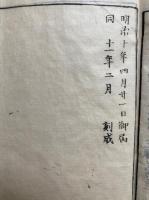 明治十年四月廿一日御届
同 十一年二月 刻成